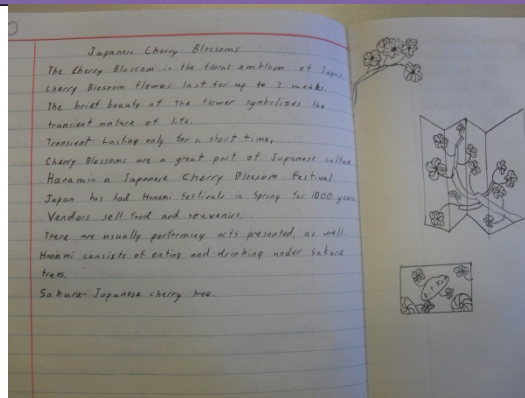 Japanese Cherry Blossoms
The Cherry Blossom in the floral emblem of Japan
Cherry Blossom flowers last for up to 2 weeks.
The brief beauty of the flower symbolizes the
transient nature of life.
Transient: Lasting only for a short time.
Cherry Blossoms are a great part of Japanese culture
Hanami: a Japanese Cherry Blossom Festival
Japan has had Hanami festivals in Spring for 1000 years
Vendors sell food and souvenirs.
There are usually performing arts presented, as well.
Hanami consists of eating and drinking under Sakura
trees.
Sakura- Japanese cherry tree.